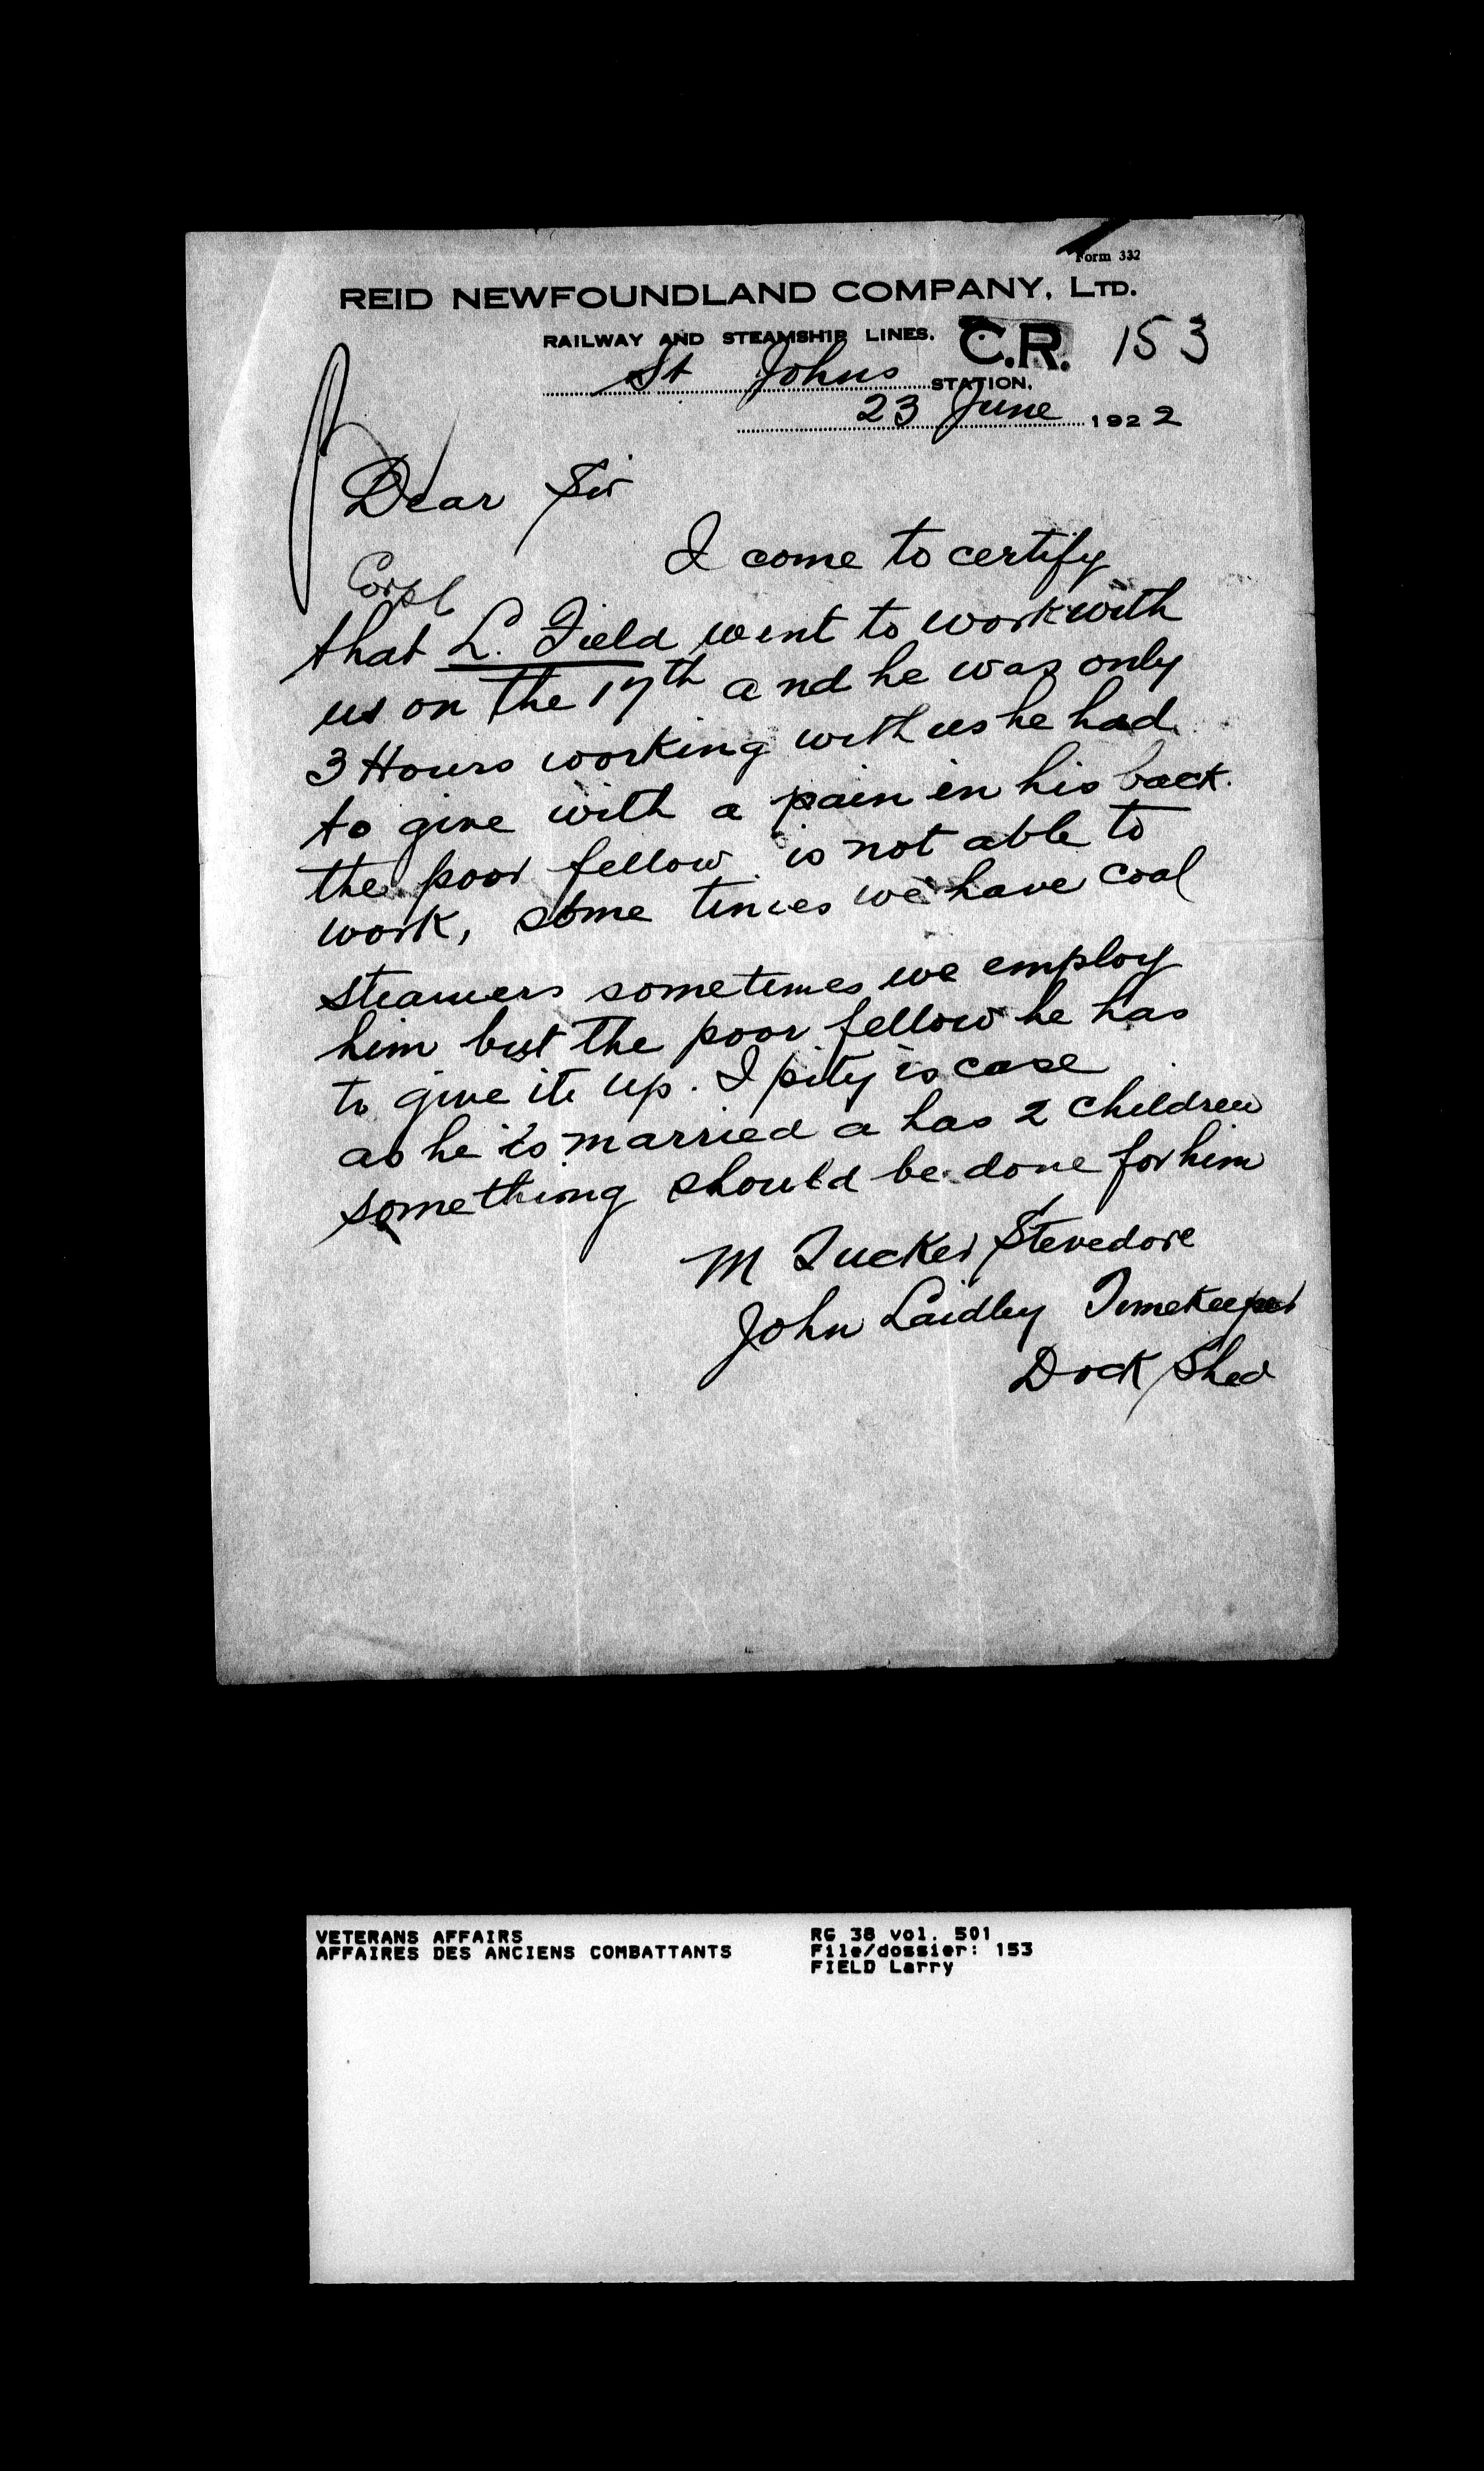 Form 332
REID NEWFOUNDLAND COMPANY, LTD.
RAILWAY AND STEAMSHIP LINES.
C.R. 153
St Johns STATION.
23 June 1922
Dear Sir
I come to certify
Corpl
that L. Field went to work with
us on the 17th and he was only
3 Hours working with us he had
to give with a pain in his back.
the poor fellow is not able to
work, some times we have coal
steamers sometimes we employ
him but the poor fellow he has
to give it up. I pity is case
as he is married a has 2 children
something should be done for him
M Tucker Stevedore
John Laidley Timekeeper
Dock Shed
VETERANS AFFAIRS
AFFAIRES DES ANCIENS COMBATTANTS
RG 38 vol. 501
File/dossier: 153
FIELD Larry